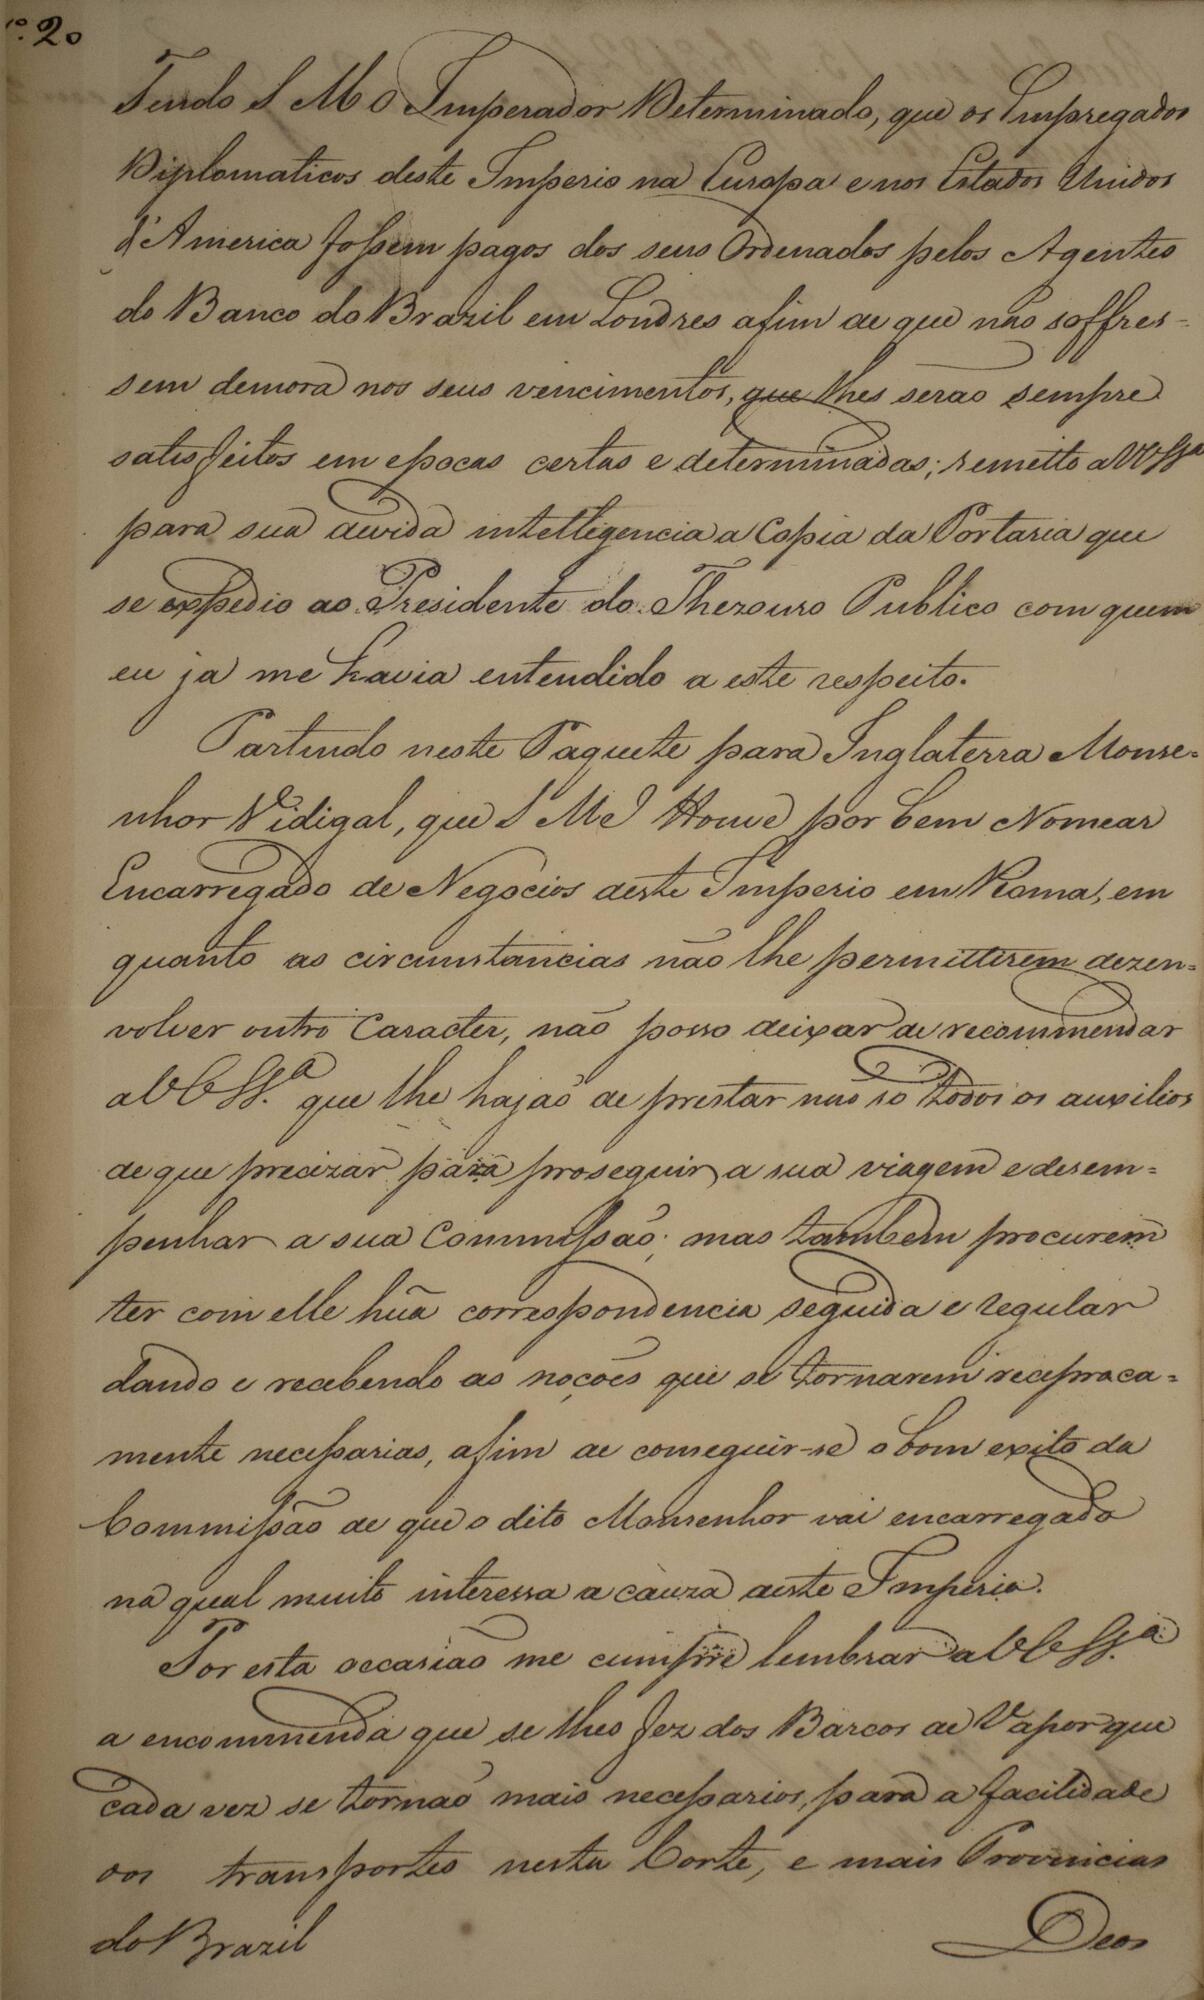 nº. 20
Tendo S M O Imperador Determinado, que os Empregados
Diplomaticos deste Imperio na Europa e nos Estados Unidos
d'America fossem pagos dos seus Ordenados pelos Agentes
do Banco do Brazil em Londres afim de que não soffres-
sem demora nos seus vencimentos, que lhes serão sempre
satisfeitos em epocas certas e determinadas; remetto a VVSSª
para sua devida intelligencia a Copia da Portaria que
se expedio ao Presidente do Thezouro Publico com quem
eu ja me havia entendido a este respeito.
Partindo neste Paquete para Inglaterra Monse=
nhor Vidigal, que S M I Houve por bem Nomear
Encarregado de Negocios deste Imperio em Roma, em
quanto as circumstancias não lhe permittirem dezen=
volver outro Caracter, não posso deixar de recommendar
a VV SSª. que lhe hajaõ de prestar não só todos os auxilios
de que precizar para proseguir a sua viagem e desem=
penhar a sua Commissão; mas tambem procurem
ter com elle hũa correspondencia seguida e regular
dando e recebendo as noções que se tornarem reciproca=
mente necessarias, afim de conseguir-se o bom exito da
Commissão de que o dito Monsenhor vai encarregado
na qual muito interessa a cauza deste Imperio.
Por esta occasião me cumpre lembrar a VV SSª.
a encommenda que se lhes fez dos Barcos de Vapor que
cada vez se tornaõ mais necessarios, para a facilidade
dos transportes nesta Corte, e mais Provincias
do Brazil
Deos